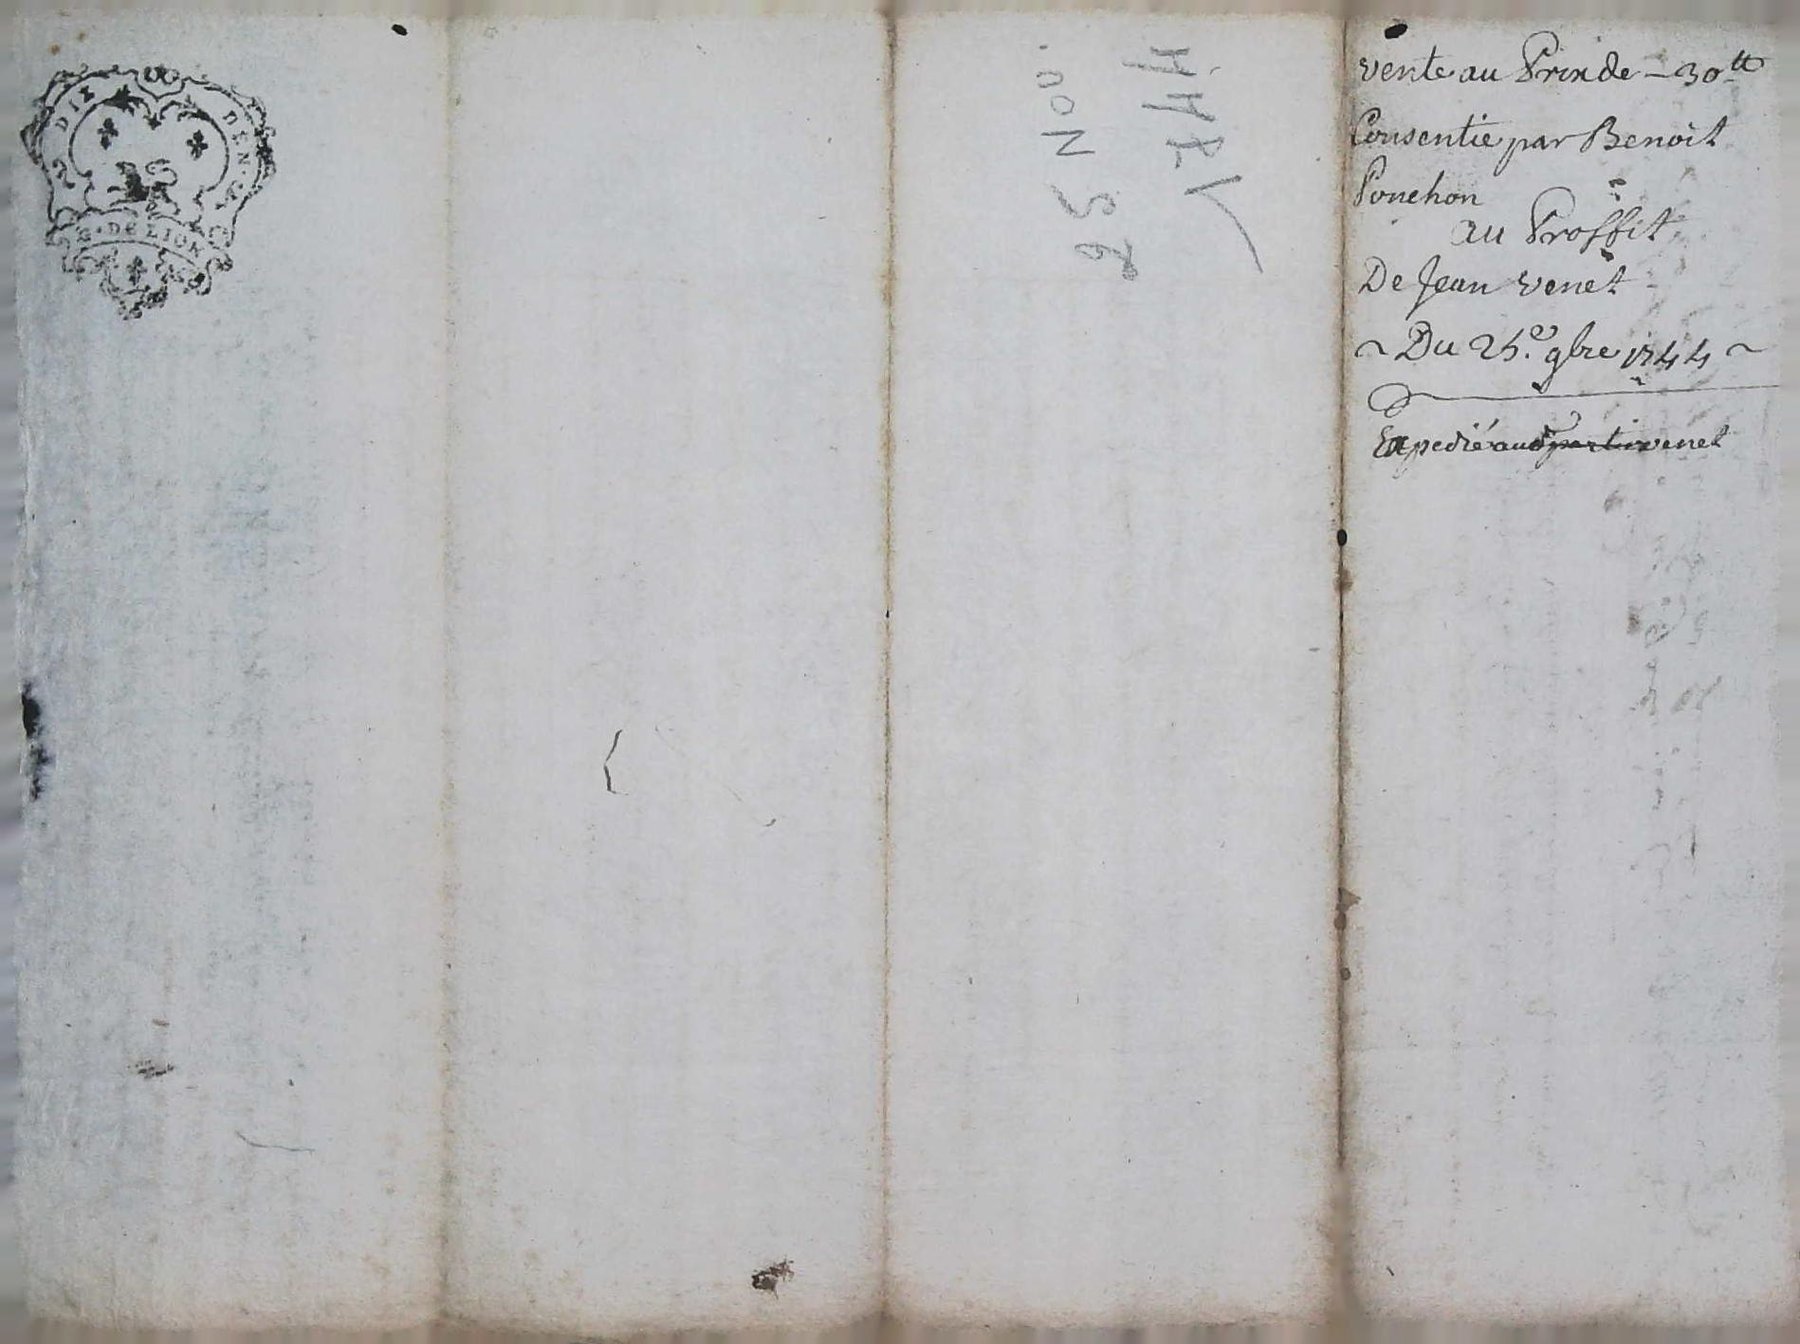 DIX DEN.
G. DE LION
25 Nov.
1744
vente au Prix de – 30tt
Consentie par Benoit
Ponchon
au Proffit
De Jean venet
~ Du 25.e 9bre 1744 ~
Expedié aud venet